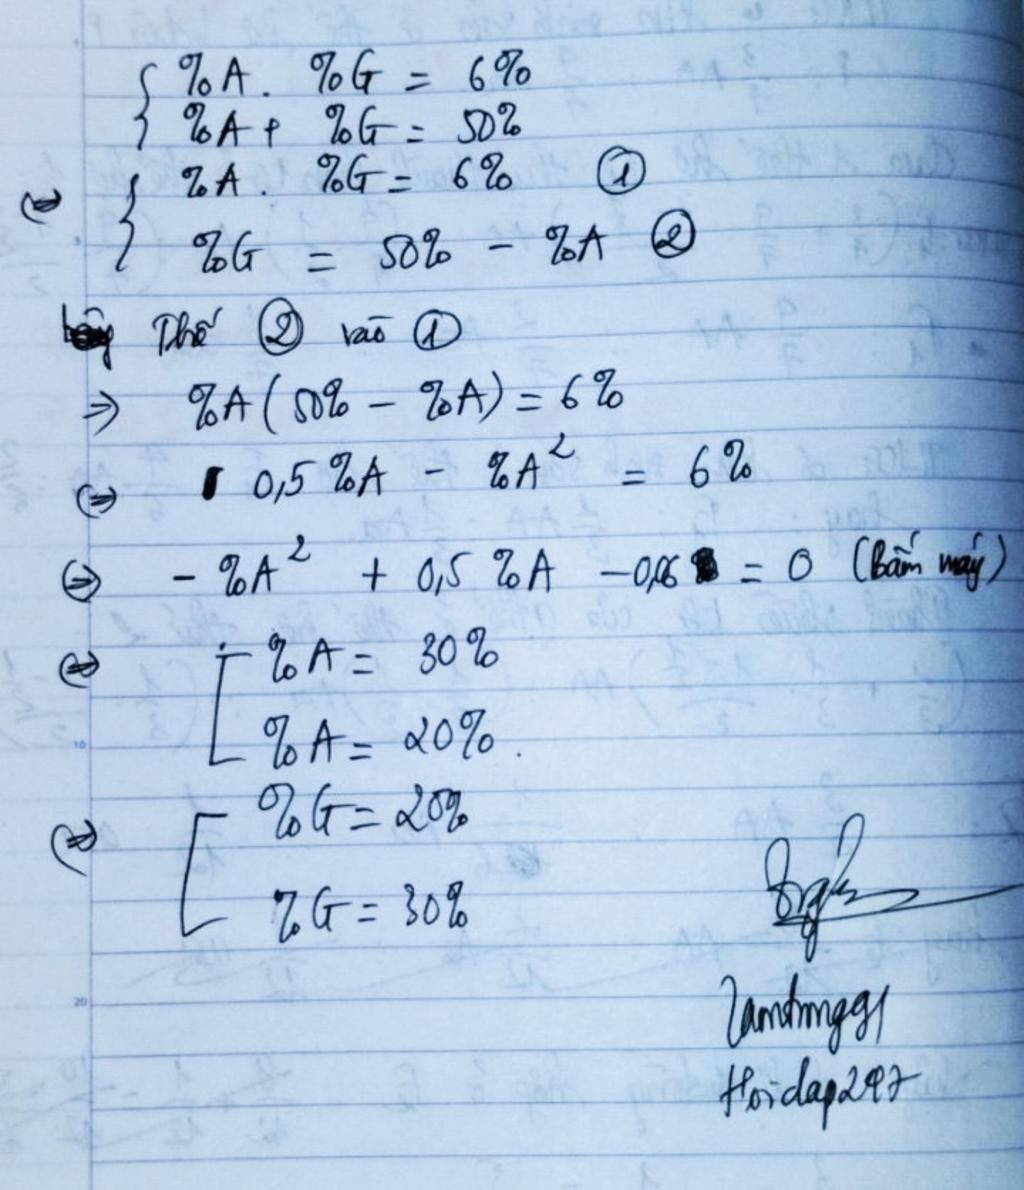 { %A . %G = 6%
%A + %G = 50%
⇔ { %A . %G = 6% ①
%G = 50% - %A ②
Thế ② vào ①
⇒ %A ( 50% - %A ) = 6%
⇔ 0,5 %A - %A² = 6%
⇔ - %A² + 0,5 %A - 0,06 = 0 (Bấm máy)
⇔ [ %A = 30%
%A = 20% .
⇔ [ %G = 20%
%G = 30%
Hoidap247